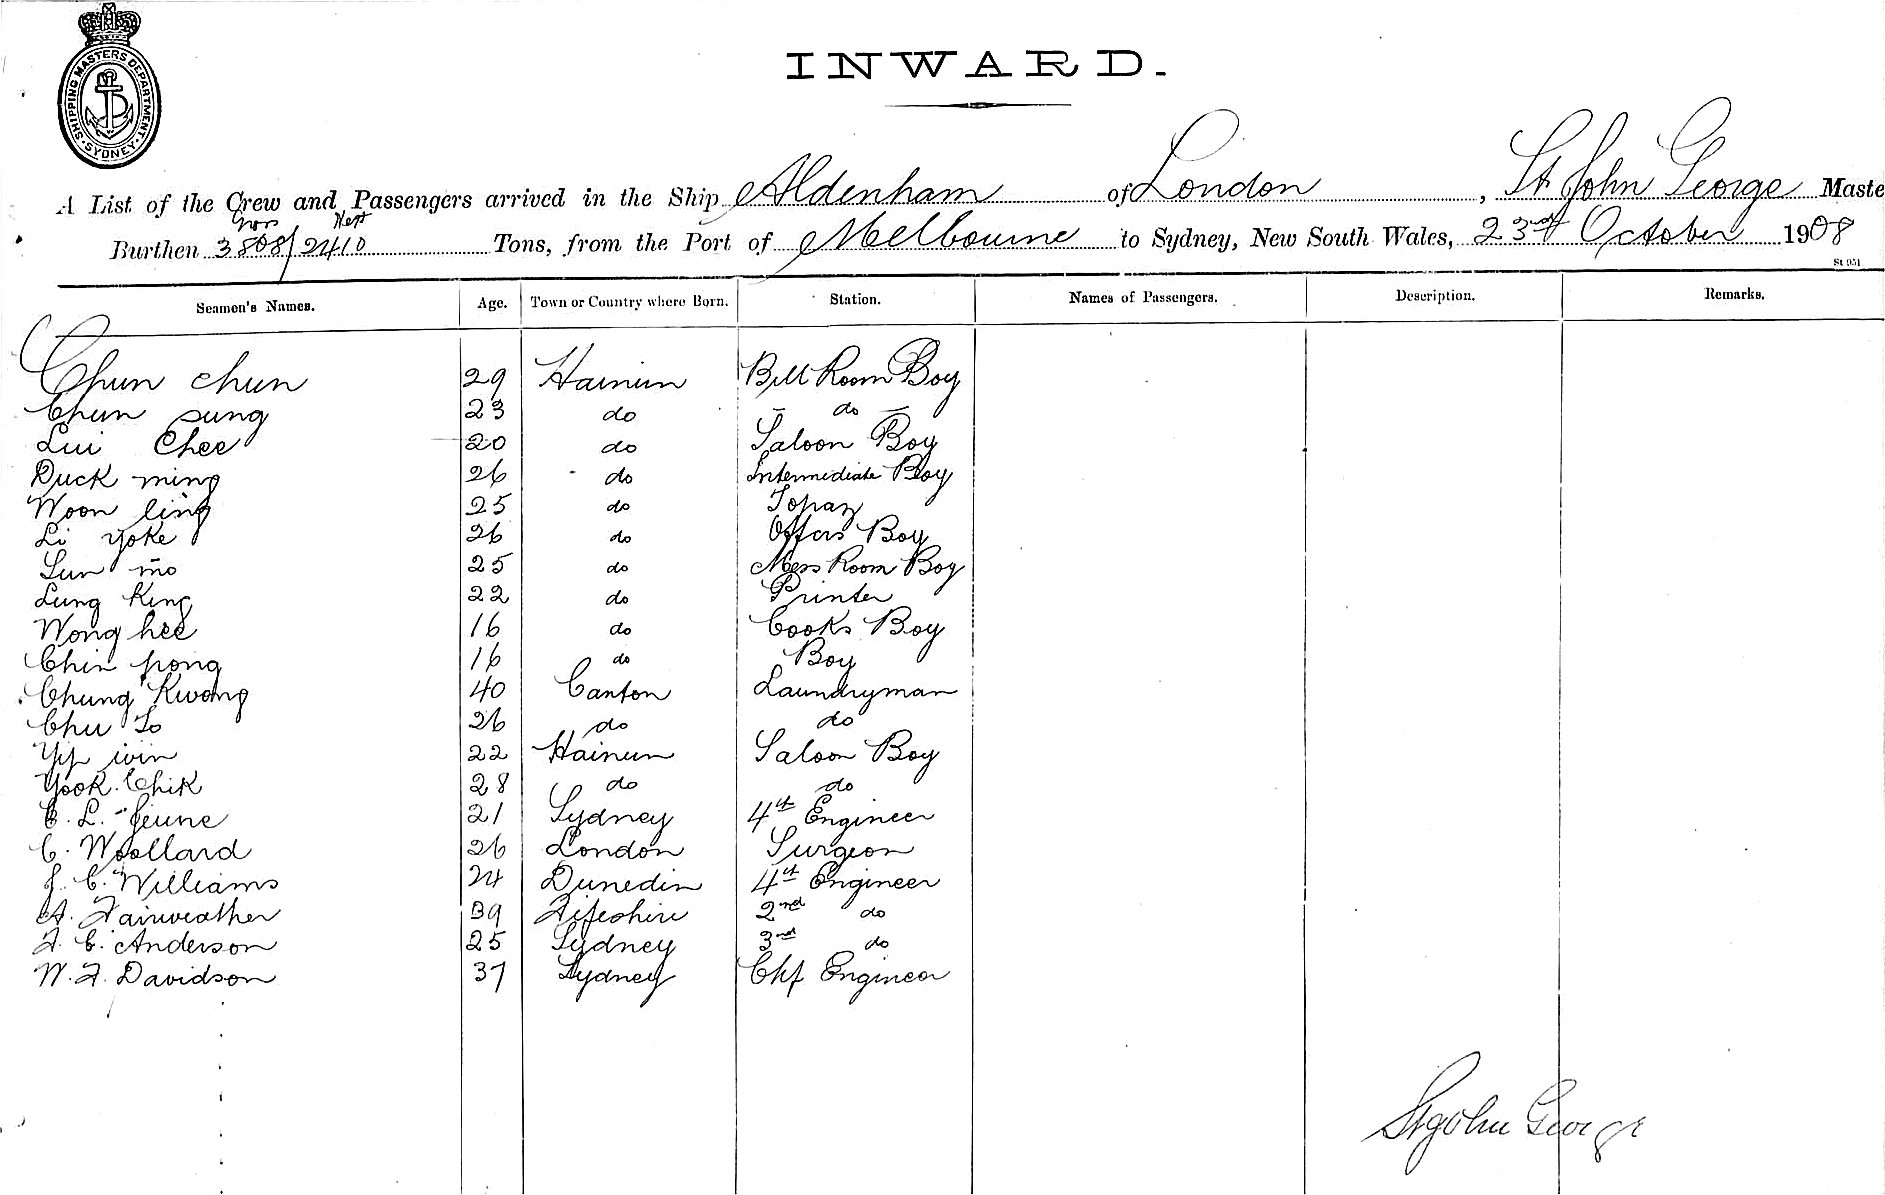 SHIPPING MASTERS DEPARTMENT · SYDNEY ·
INWARD.
A List of the Crew and Passengers arrived in the Ship Aldenham of London, St John George Maste
Gross Nett
Burthen 3808/2410 Tons, from the Port of Melbourne to Sydney, New South Wales, 23rd October 1908
St 951
Seamen's Names. Age. Town or Country where Born. Station. Names of Passengers. Description. Remarks.
Chun chun 29 Hainun Bell Room Boy
Chun sung 23 do do
Lui Chee 20 do Saloon Boy
Duck ming 26 do Intermediate Boy
Woon ling 25 do Topaz
Li yoke 26 do Offers Boy
Sun mo 25 do Mess Room Boy
Lung King 22 do Printer
Wong hee 16 do Cooks Boy
Chin pong 16 do Boy
Chung Kwong 40 Canton Laundryman
Chu To 26 do do
Yip win 22 Hainun Saloon Boy
Yook Chik 28 do do
C. L. Jeune 21 Sydney 4th Engineer
C. Woollard 26 London Surgeon
J. C. Williams 24 Dunedin 4th Engineer
A. Fairweather 39 Fifeshire 2nd do
F. C. Anderson 25 Sydney 3rd do
W. F. Davidson 37 Sydney Chf Engineer
St John George